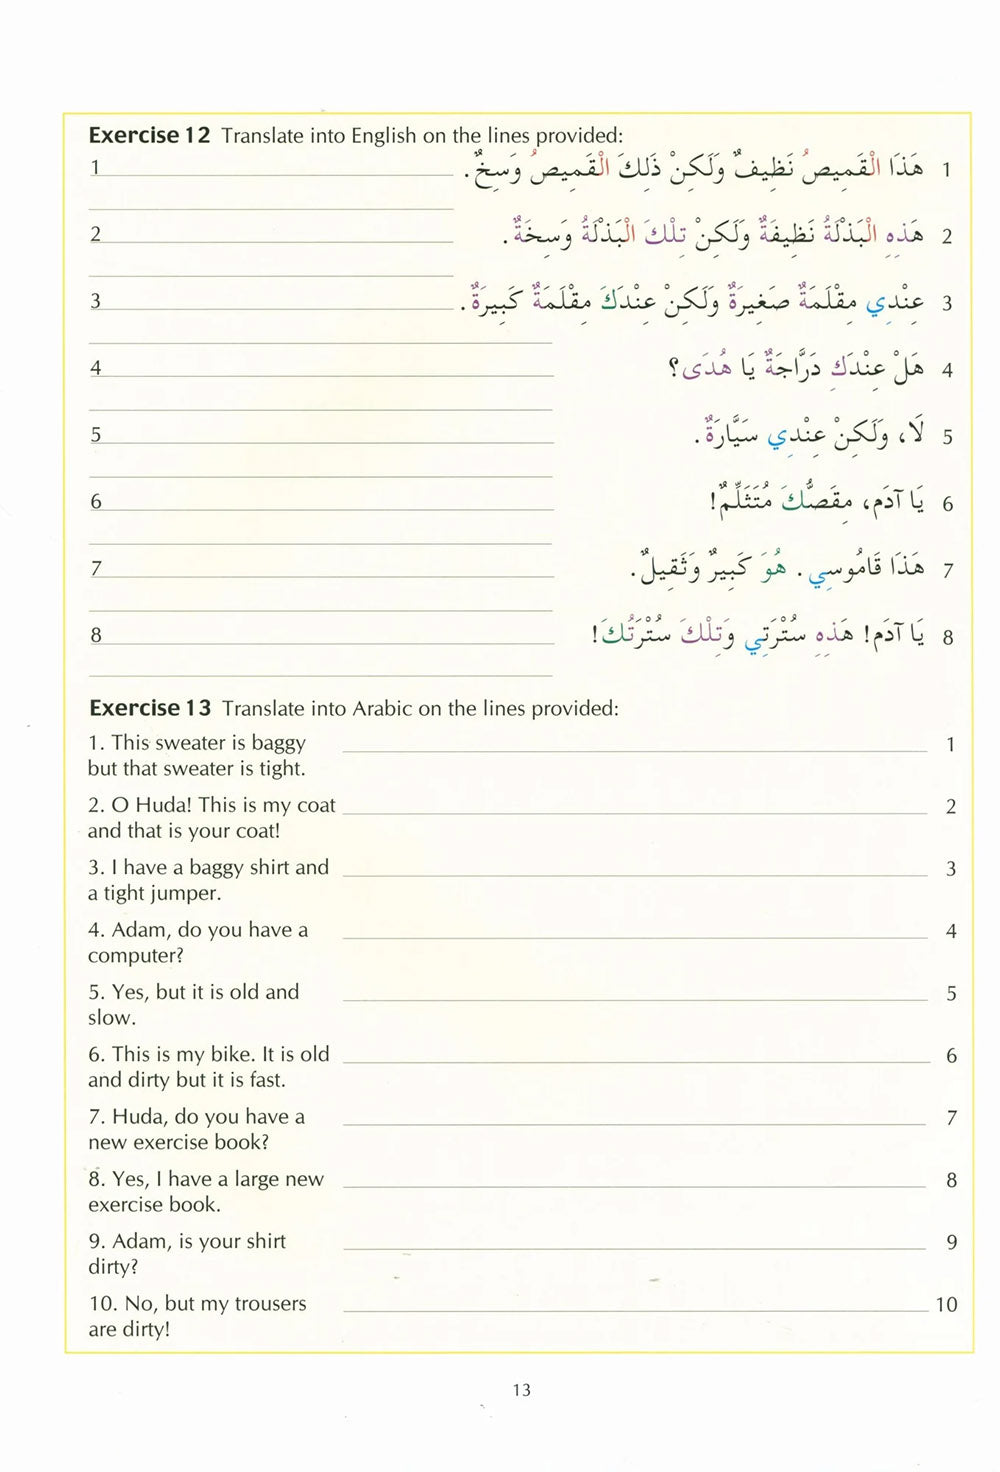 Exercise 12 Translate into English on the lines provided:
1 هَذَا الْقَمِيصُ نَظِيفٌ وَلَكِنْ ذَلِكَ الْقَمِيصُ وَسِخٌ. 1
2 هَذِهِ الْبَذْلَةُ نَظِيفَةٌ وَلَكِنْ تِلْكَ الْبَذْلَةُ وَسِخَةٌ. 2
3 عِنْدِي مِقْلَمَةٌ صَغِيرَةٌ وَلَكِنْ عِنْدَكَ مِقْلَمَةٌ كَبِيرَةٌ. 3
4 هَلْ عِنْدَكِ دَرَّاجَةٌ يَا هُدَى؟ 4
5 لَا، وَلَكِنْ عِنْدِي سَيَّارَةٌ. 5
6 يَا آدَم، مِقَصُّكَ مُتَثَلِّمٌ! 6
7 هَذَا قَامُوسِي. هُوَ كَبِيرٌ وَثَقِيلٌ. 7
8 يَا آدَم! هَذِهِ سُتْرَتِي وَتِلْكَ سُتْرَتُكَ! 8
Exercise 13 Translate into Arabic on the lines provided:
1. This sweater is baggy 1
but that sweater is tight.
2. O Huda! This is my coat 2
and that is your coat!
3. I have a baggy shirt and 3
a tight jumper.
4. Adam, do you have a 4
computer?
5. Yes, but it is old and 5
slow.
6. This is my bike. It is old 6
and dirty but it is fast.
7. Huda, do you have a 7
new exercise book?
8. Yes, I have a large new 8
exercise book.
9. Adam, is your shirt 9
dirty?
10. No, but my trousers 10
are dirty!
13